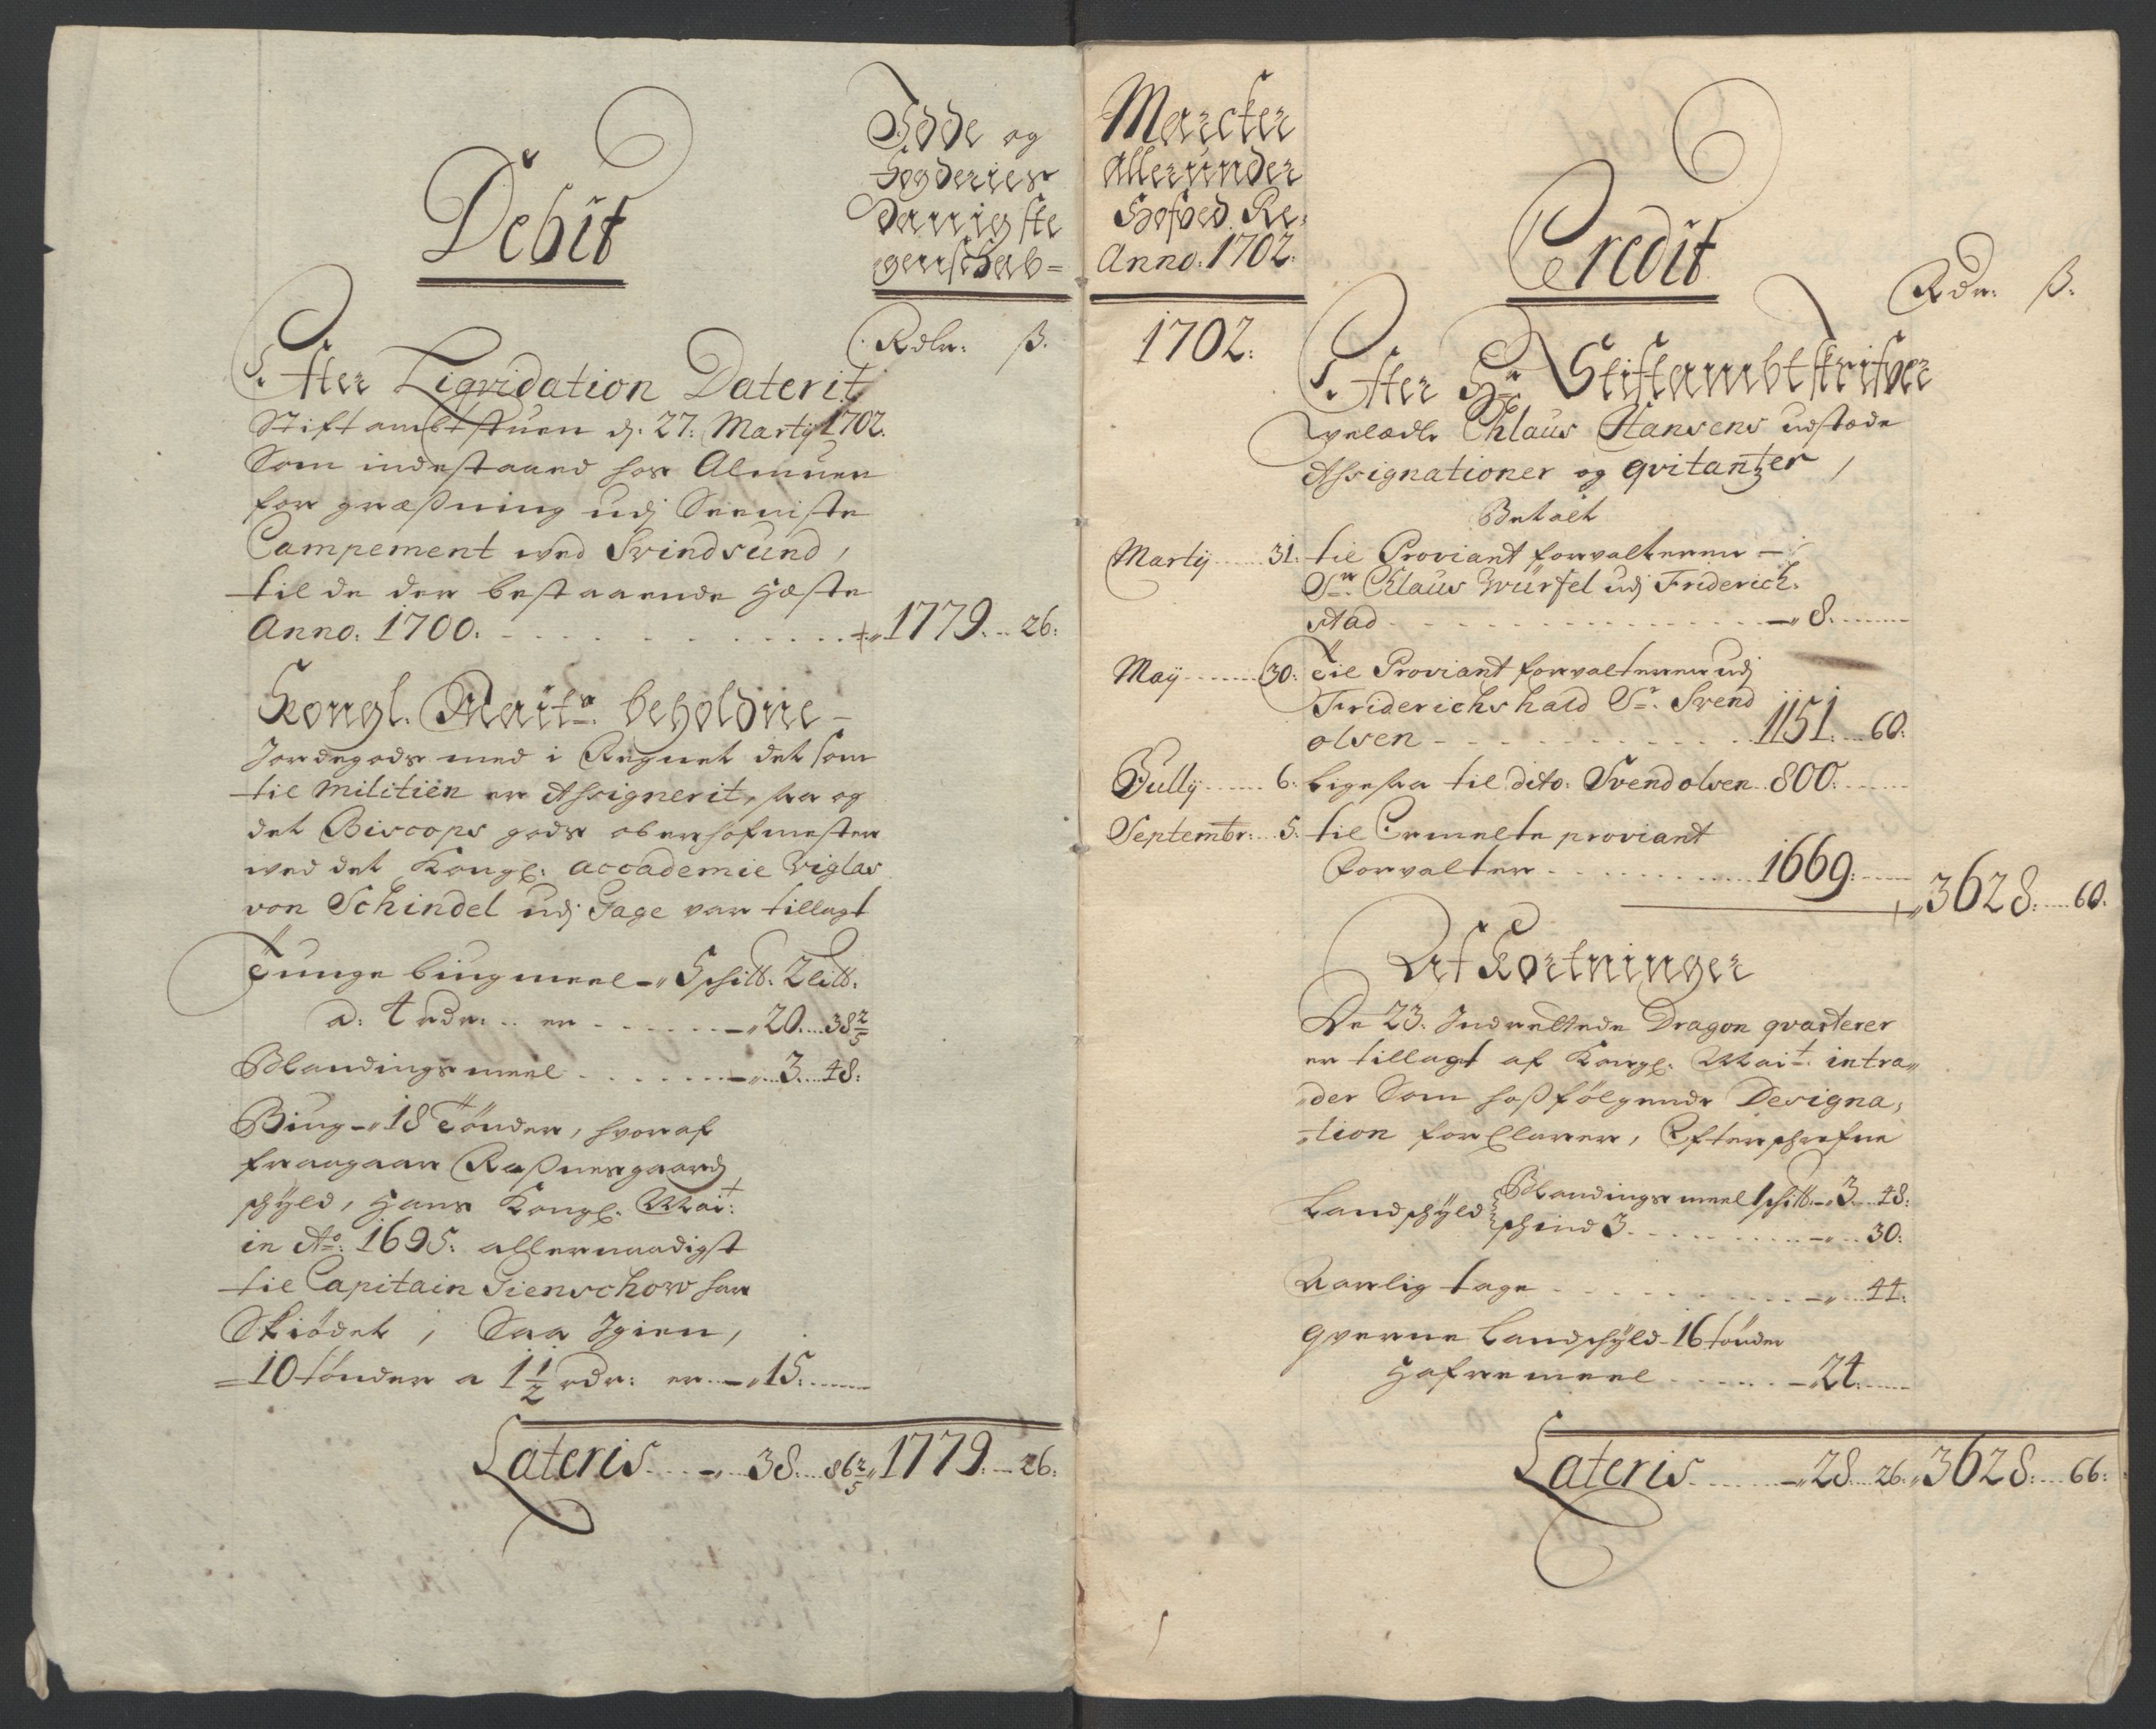 Debit
Idde og
Fogderies
danigste
genschab=
Rdlr: ß.
Efter Liqvidation Daterit
Stiftambtstuen d. 27: Martÿ 1702.
Som indestaaed hos Almuen
for græßning udj Seeniste
Campement ved Svindsund,
til de der bestaaende Heste
Anno. 1700. 1779. 26:
Kongl. Maits. beholdne
Jordegods med i Regnet det som
til militien er Assignerit, saa og
det Biscops gods oberhofmester
ved det Kongl. accademie Viglas
von Schindel udj Gage var tillagt
Tunge biugmeel 5 schitt. 2 litt.
a. 4 rdr: er 20 38 2/5
Blandings meel 3 48:
Biug 18 Tönder, hvoraf
fraagaar Raßnesgaards
schÿld, Hans Kongl. Mait:
in Ao: 1695. allernaadigst
til Capitain Sienschow har
Skiödet, Saa Igien,
10 tönder a 1 1/2 rdr: er 15.
Lateris 38 86 2/5 1779. 26:
Marcker
allerunder
Hofved Re,
Anno. 1702.
1702.
Credit
Rdr: ß.
Efter Hr. Stiftambtskrifver
velædle Chlaus Hansens udstæde
Assignationer og qvitantzer,
Betalt
Martÿ 31. til Proviant forvalteren
Sr. Claus Würfel udj Friderich.
stad 8.
Maÿ 30. Til Proviant forvalteren udj
Friderichshald Sr. Svend
olsen 1151. 60.
Jullÿ 6. ligesaa til dito. Svend olsen 800.
Septembr: 5. til Ermelte proviant
forvalter 1669.
3628. 60.
Afkortninger
De 23. Indrettede Dragon qvarterer
er tillagt af Kongl. Mait. intra„
„der Som hoßfölgende Designa,
„tion forClarer, Efterschrefne
Landschÿld Blandings meel 1 schitt. 3. 48:
schind 3 30:
Aarlig tage 44.
qverne Landschÿld 16 tönder
Hafremeel 24.
Lateris 28 26. 3628. 66.